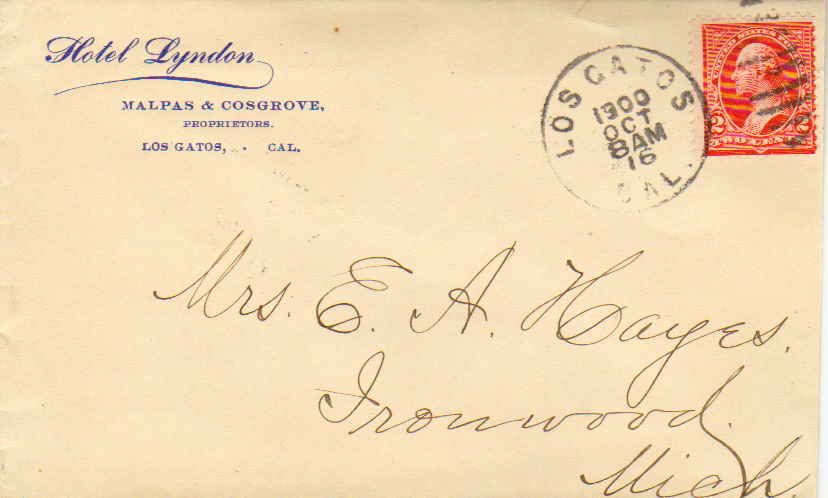 Hotel Lyndon
MALPAS & COSGROVE,
PROPRIETORS.
LOS GATOS, . CAL.
LOS GATOS
1900
OCT
8AM
16
CAL.
2 2
Mrs. E. A. Hayes.
Ironwood.
Mich.